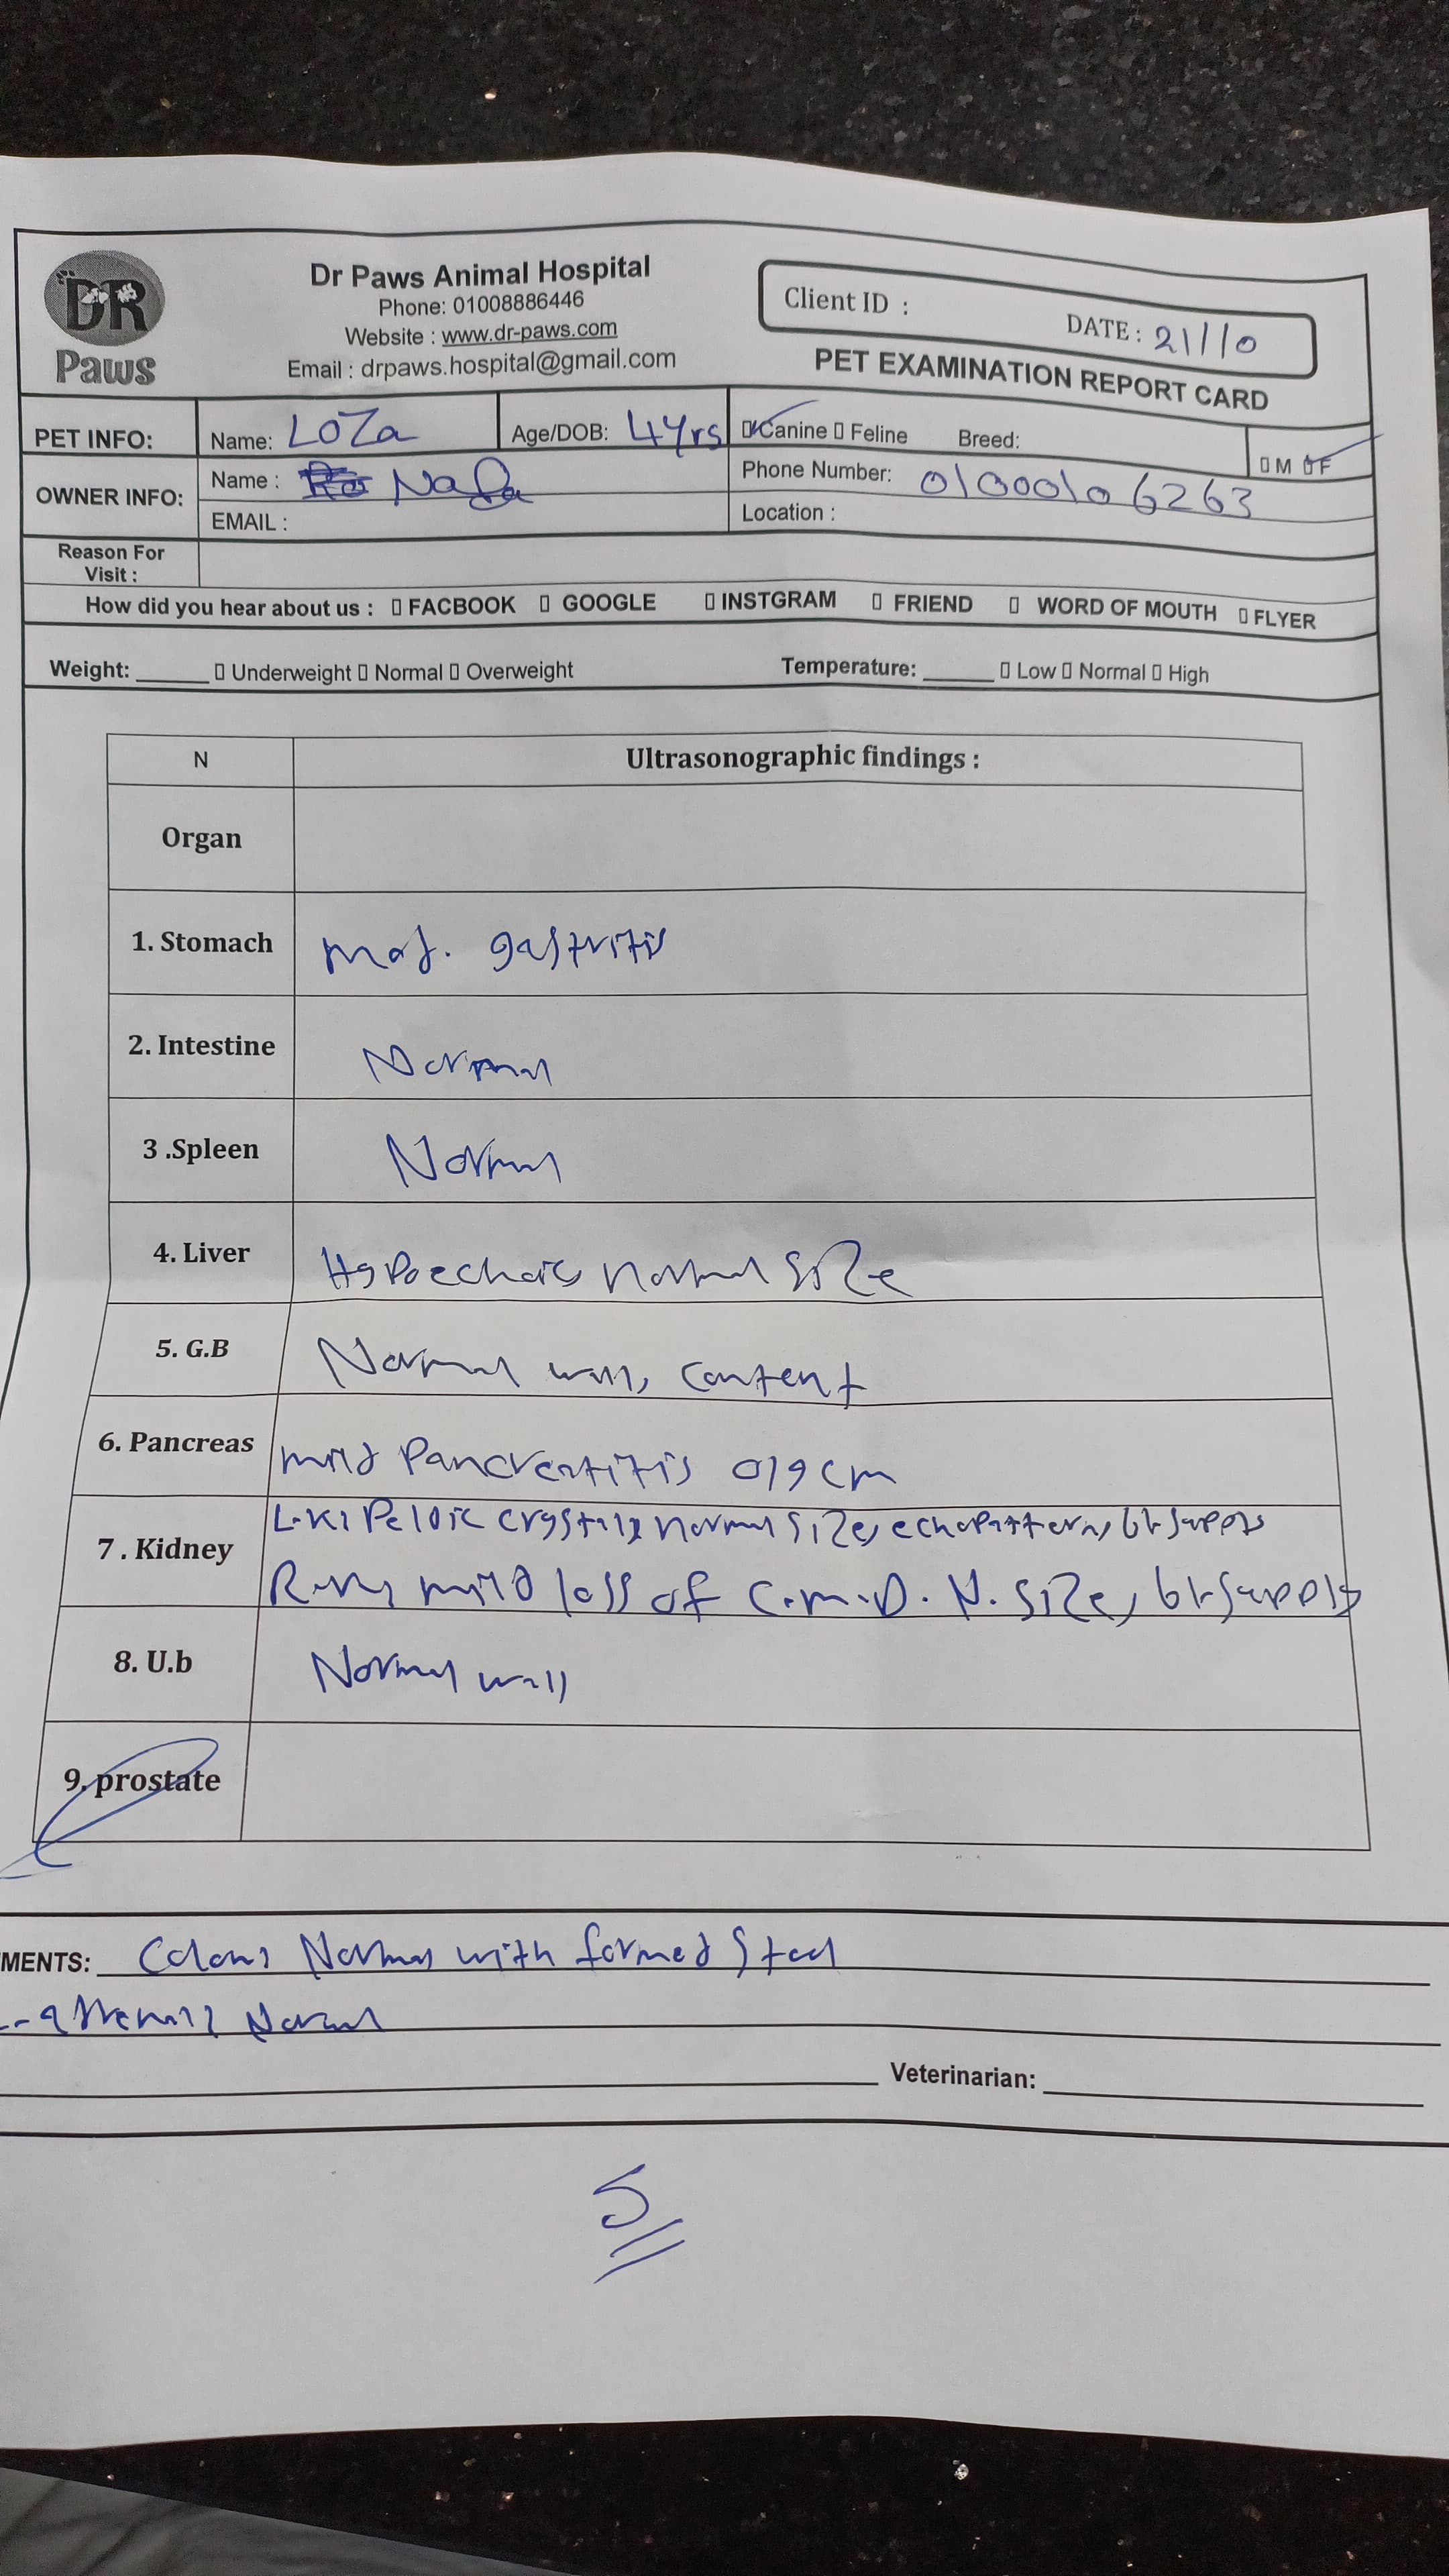 DR
Paws
Dr Paws Animal Hospital
Phone: 01008886446
Website : www.dr-paws.com
Email : drpaws.hospital@gmail.com
Client ID :
DATE: 21/10
PET EXAMINATION REPORT CARD
PET INFO: Name: LoZa Age/DOB: 4yrs Canine Feline Breed: M F
OWNER INFO: Name : Phone Number: 01000106263
EMAIL : Location :
Reason For
Visit :
How did you hear about us : FACBOOK GOOGLE INSTGRAM FRIEND WORD OF MOUTH FLYER
Weight: ______ Underweight Normal Overweight Temperature: ______ Low Normal High
N Ultrasonographic findings :
Organ
1. Stomach gastritis
2. Intestine Normal
3 .Spleen Normal
4. Liver Hypoechoic normal size
5. G.B Normal wall, content
6. Pancreas mild Pancreatitis 0,9 cm
7 . Kidney L.K: Pelvic crystals, normal size, echopattern, bl. supply
mild loss of C.M.D. N. size, bl. supply
8. U.b Normal wall
9. prostate
MENTS: Colon: Normal with formed stool
Normal
Veterinarian:
5